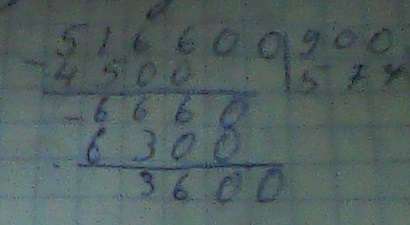 516600 900
-4500 577
-6660
6300
3600